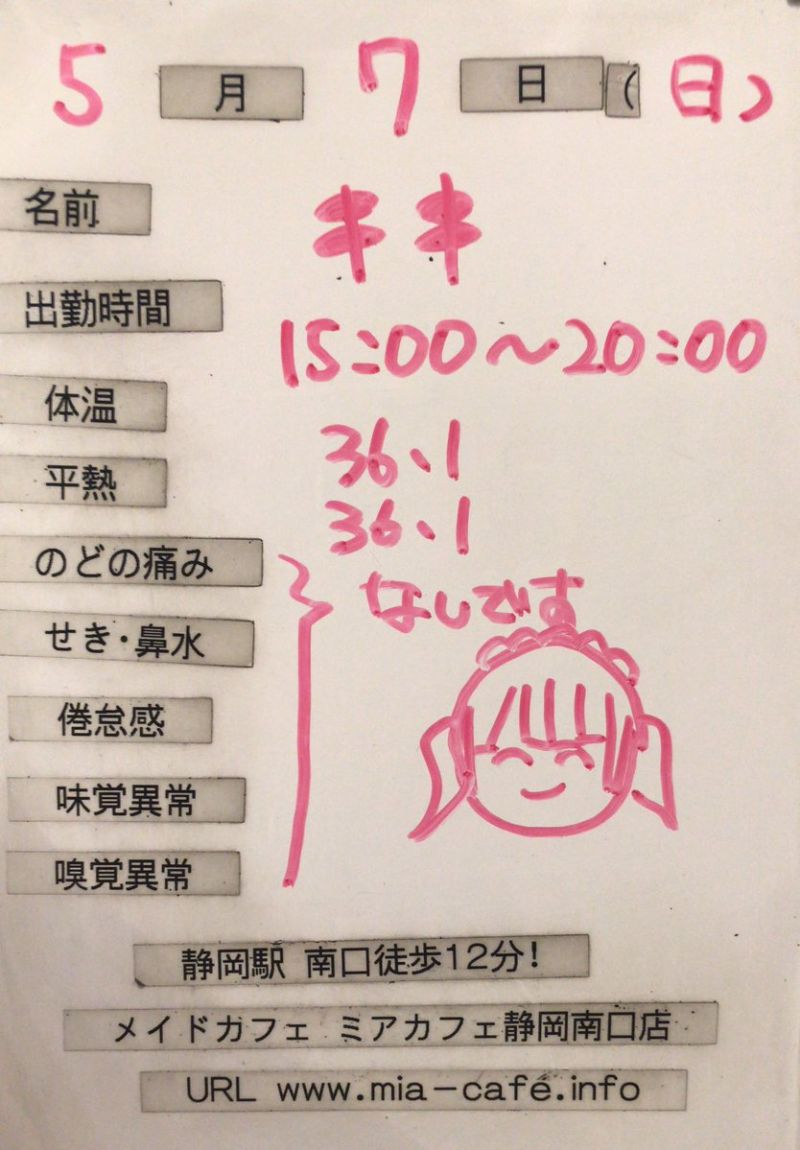 5月7日(日)
名前 キキ
出勤時間 15:00〜20:00
体温 36.1
平熱 36.1
のどの痛み なしです
せき・鼻水
倦怠感
味覚異常
嗅覚異常
静岡駅 南口徒歩12分!
メイドカフェ ミアカフェ静岡南口店
URL www.mia-café.info